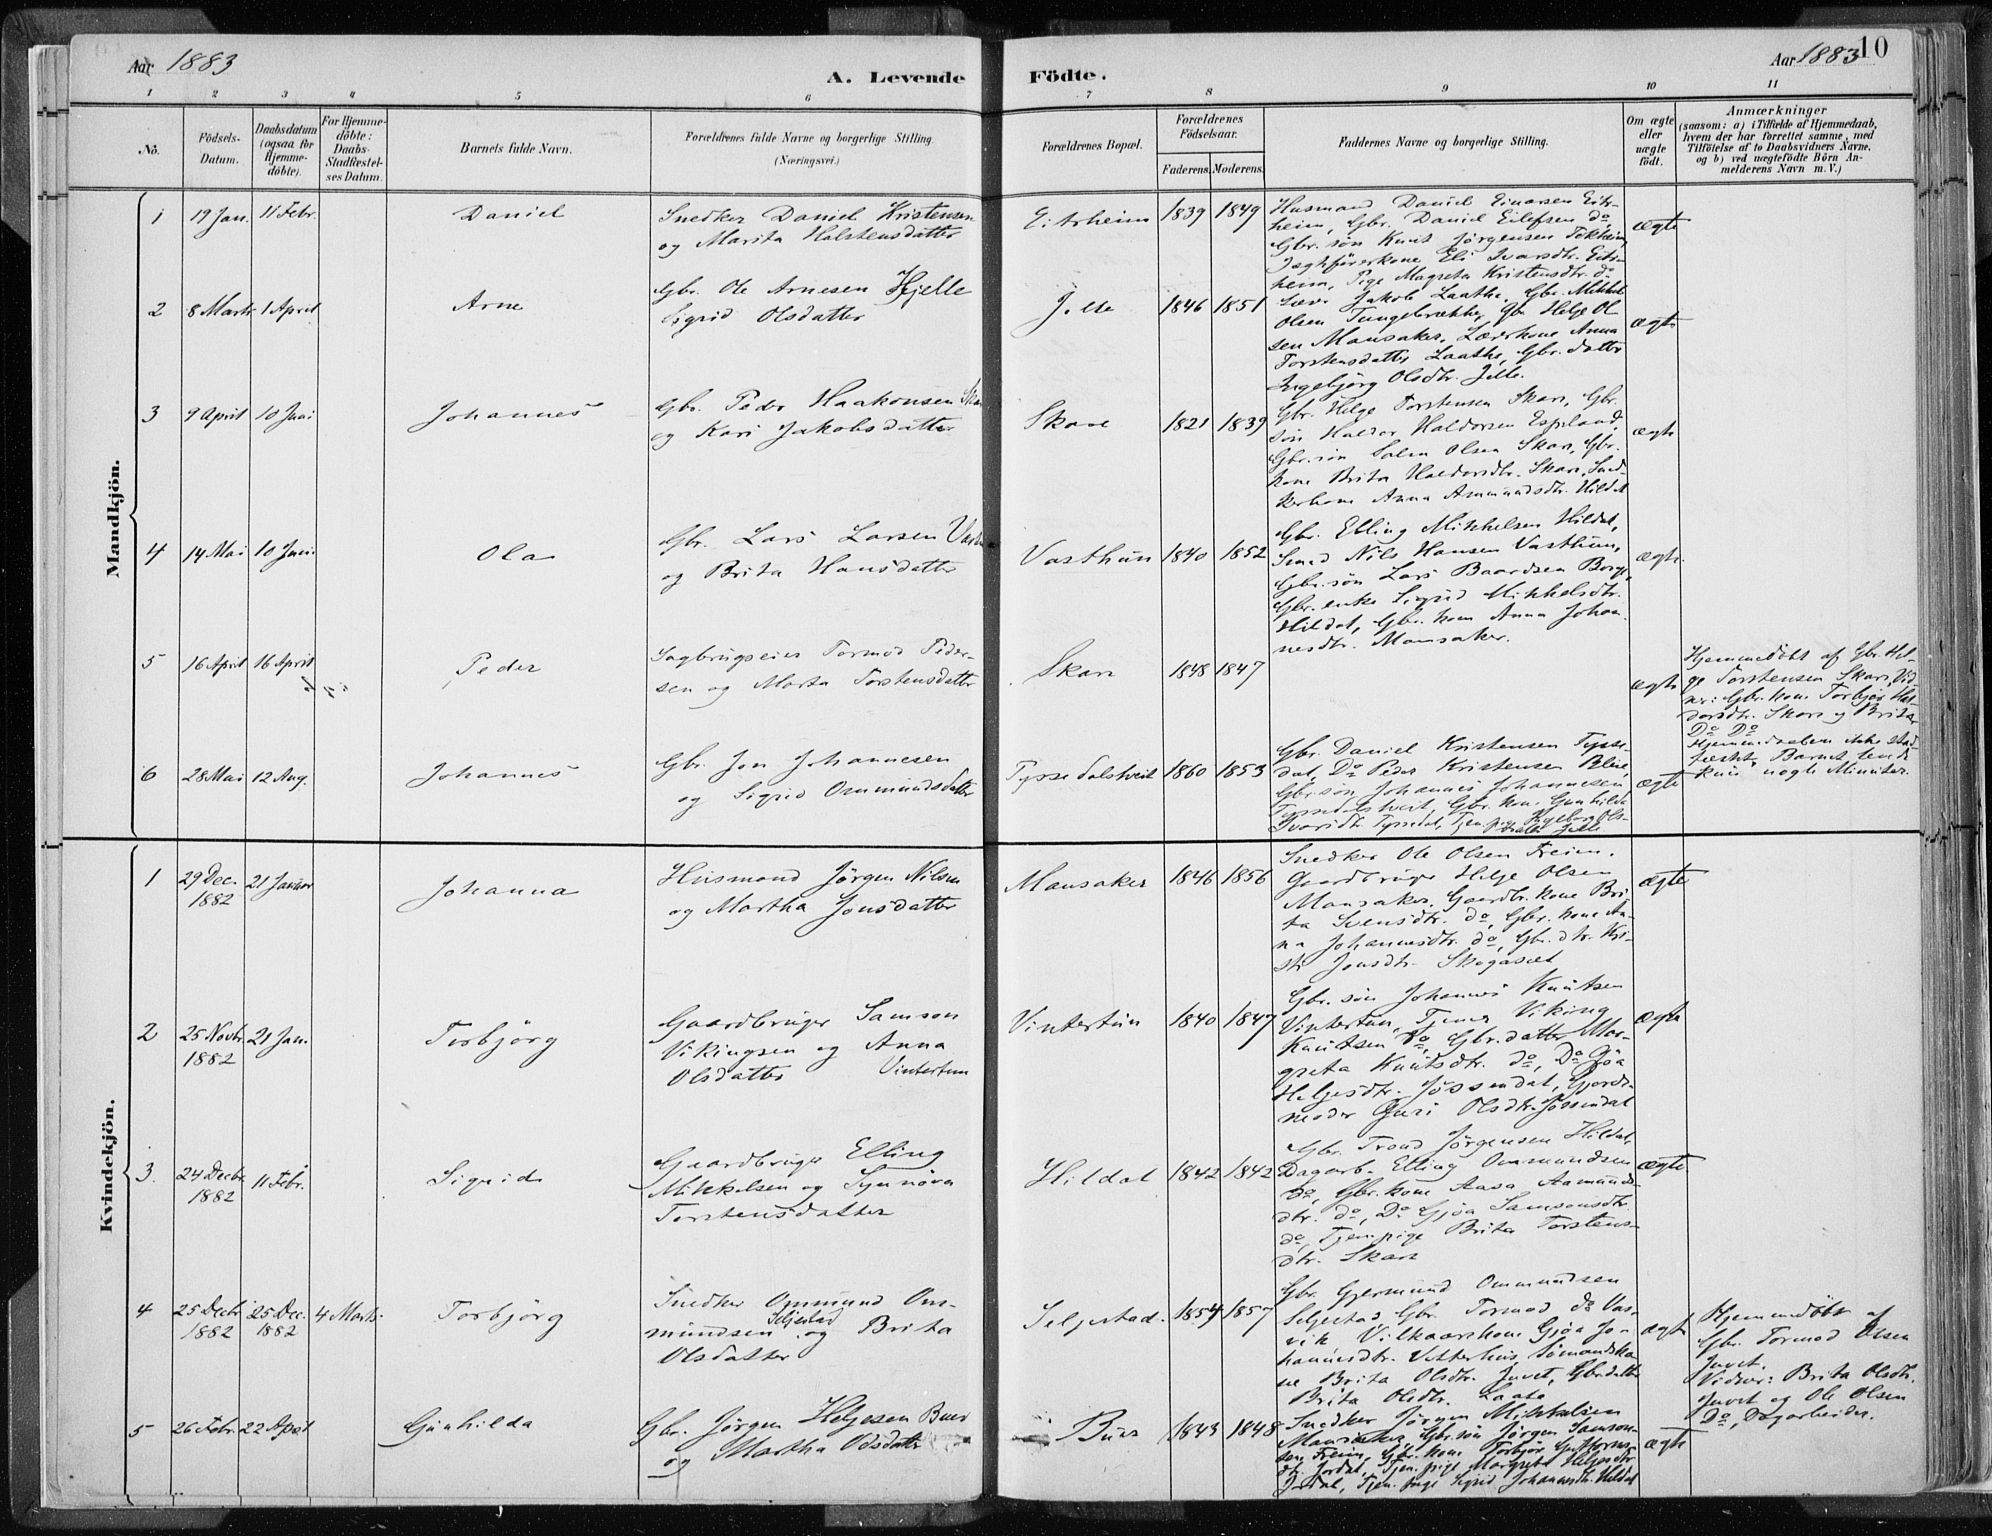 Aar 1883
A. Levende Födte.
Aar 1883 10
1 2 3 4 5 6 7 8 9 10 11
No.
Födsels-
Datum.
Daabsdatum
(ogsaa for
Hjemme-
döbte).
For Hjemme-
döbte:
Daabs-
Stadfæstel-
ses Datum.
Barnets fulde Navn.
Forældrenes fulde Navne og borgerlige Stilling
(Næringsvei.)
Forældrenes Bopæl.
Forældrenes
Födselsaar.
Faderens. Moderens.
Faddernes Navne og borgerlige Stilling.
Om ægte
eller
uægte
födt.
Anmærkninger
(saasom: a) i Tilfælde af Hjemmedaab,
hvem der har forrettet samme, med
Tilföielse af to Daabsvidners Navne,
og b) ved uægtefödte Börn An-
melderens Navn m. V.)
Mandkjön.
1 19 Jan. 11 Febr. Daniel
Snedker Daniel Kristensen
og Marita Halstensdatter
1839 1849
Husmand Daniel Einarsen Eitr-
heim, Gbr. Daniel Eilefsen do,
Gbr. søn Knut Jørgensen Tokheim,
Jægtførerkone Eli Ivarsdtr. Eitr-
heim, Pige Magreta Kristensdtr. do
ægte
2 8 Marts 1 April Arne
Gbr. Ole Arnesen Hjelle
Sigrid Olsdatter
Jelle 1846 1851
Lærer Jakob Laathe, Gbr. Mikkel
Olsen Tungebrække, Gbr Helje Ol
sen Mansaker, Lærerkone Anna
Torstensdatter Laathe, Gbr. datter
Ingebjörg Olsdtr. Jelle.
ægte
3 9 April 10 Juni Johannes
Gbr. Peder Haakonsen Skar
og Kari Jakobsdatter
Skare 1821 1839
Gbr. Helge Torstensen Skare, Gbr.
søn Haldor Haldorsen Espeland,
Gbr. søn Olsen Skare, Gbr.
kone Brita Haldorsdtr. Skare, Sned-
kerkone Anna Asmundsdtr. Hildal
ægte
4 14 Mai 10 Juni Ola
Gbr. Lars Larsen
og Brita Hansdatter
Vasthun 1840 1852
Gbr. Elling Mikkelsen Hildal,
Smed Nils Hansen Vasthun,
Gbr. søn Lars Baardsen
Gbr. enke Sigrid Mikkelsdtr.
Hildal, Gbr. kone Anna Johan
nesdtr. Mansaker.
ægte
5 16 April 16 April Peder
Sagbrugseier Tormod Peder-
sen og Marta Torstensdatter
Skare 1848 1847
ægte
Hjemmedöbt af Gbr. Hel-
ge Torstensen Skare, Vid-
ner: Gbr. kone Torbjør Hal-
dorsdtr. Skare og Brita
Do Do
Hjemmedaaben ikke stad-
fæstet, Barnet levede
kun nogle Minuter.
6 28 Mai 12 Aug. Johannes
Gbr. Jon Johannesen
og Sigrid Ommundsdatter
Tyssedalstveit 1860 1853
Gbr. Daniel Kristensen Tysse-
dal, Do Peder Kristensen Bleie,
Gbr. søn Johannes Johannesen
Tyssedalstveit, Gbr. kone Gunhilda
Ivarsdtr. Tyssedal, Tjen. pige Ingeborg Ols-
datter Jelle
ægte
Kvindekjön.
1 29 Dec. 1882 21 Januar Johanna
Husmand Jørgen Nilsen
og Martha Jonsdatter
Mansaker 1846 1856
Snedker Ole Olsen Freim,
Gaardbruger Helje Olsen
Mansaker, Gaardbr. kone Bri-
ta Svensdtr. do, Gbr. kone An-
na Johannesdtr. do, Gbr. dtr. Kri-
sti Jonsdtr. Skogasæl
ægte
2 25 Novbr. 1882 21 Jan. Torbjörg
Gaardbruger Samson
Vikingsen og Anna
Olsdatter Vintertun
Vintertun 1840 1847
Gbr. søn Johannes Knutsen
Vintertun, Tjener Viking
Knutsen Do, Gbr. datter Mar-
greta Knutsdtr. do, Do Gjøa
Helgesdtr. Jøssendal, Gjorde-
moder Guri Olsdtr. Jøssendal
ægte
3. 24 Decbr. 1882 11 Febr. Sigrid
Gaardbruger Elling
Mikkelsen og Synnøva
Torstensdatter
Hildal 1842 1842
Gbr. Trond Jørgensen Hildal,
Dagarb. Elling Ommundsen
do, Gbr. kone Aasa Aamunds-
dtr. do, Do Gjøa Samsonsdtr.
do, Tjen. pige Brita Torstens-
dtr. Skare
ægte
4 25 Decbr. 1882 25 Dec. 1882 4 Marts Torbjörg
Snedker Ommund Om-
mundsen Seljestad og Brita
Olsdatter
Seljestad. 1854 1857
Gbr. Gjermund Ommundsen
Seljestad, Gbr. Tormod do Vas-
vik, Vilkaarskone Gjøa Jo-
hannesdtr. Vetterhus, Sømandsko-
ne Brita Olsdtr. Juvet, Gbr. datter
Brita Olsdtr. Laate
ægte
Hjemmedöbt af
Gbr. Tormod Olsen
Juvet.
Vidner: Brita Olsdtr.
Juvet og Ole Olsen
Do, Dagarbeider.
5 26 Febr. 22 April Gunhilda
Gbr. Jørgen Helgesen Buer
og Martha Odsdatter
Buer 1843 1848
Snedker Jørgen Mikkelsen
Mansaker, Gbr. søn Jørgen Samson-
sen Freim, Gbr. kone Torbjør Guttorms-
dtr. Jordal, Tjen. pige Margreta Helgesdtr.
Jordal, Tjen. pige Sigrid Johannesdtr. Hildal
ægte